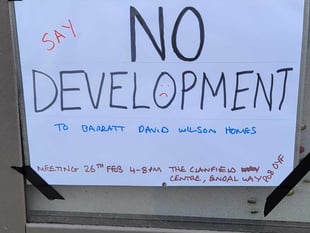 SAY
NO
DEVELOPMENT
TO BARRATT DAVID WILSON HOMES
MEETING 26TH FEB 4-8PM THE CLANFIELD
CENTRE, ENDAL WAY PO8 0YF